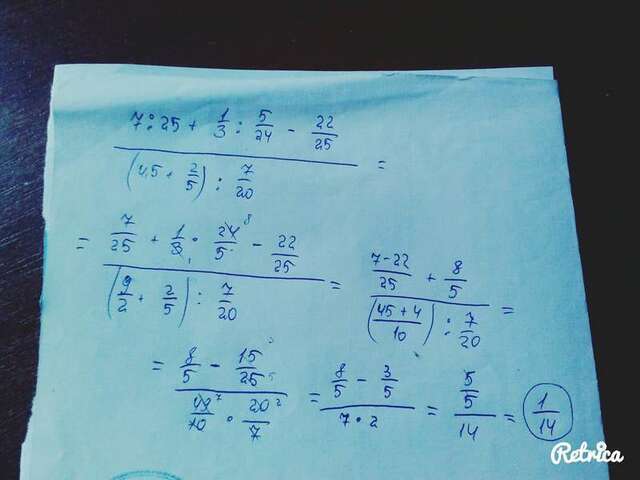 7:25 + 1/3 : 5/24 - 22/25
(4,5 + 2/5) : 7/20 =
= 7/25 + 1/3 · 24/5 8 - 22/25
(9/2 + 2/5) : 7/20 = 7-22/25 + 8/5
(45+4/10) : 7/20 =
= 8/5 - 15/25 3 5
49/10 7 · 20/7 2 = 8/5 - 3/5
7·2 = 5/5
14 = 1/14
Retrica